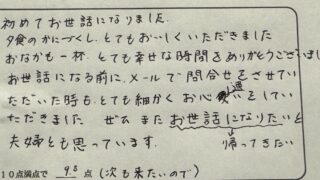 初めてお世話になりました
夕食のかにづくし、とてもおいしくいただきました
おなかも一杯、とても幸せな時間をありがとうございまし
お世話になる前に、メールで問合せをさせてい
ただいた時も、とても細かくお心遣いをしてい
ただきました ぜひ またお世話になりたいと
夫婦とも思っています。 帰ってきたい
10点満点で 98 点 (次も来たいので)